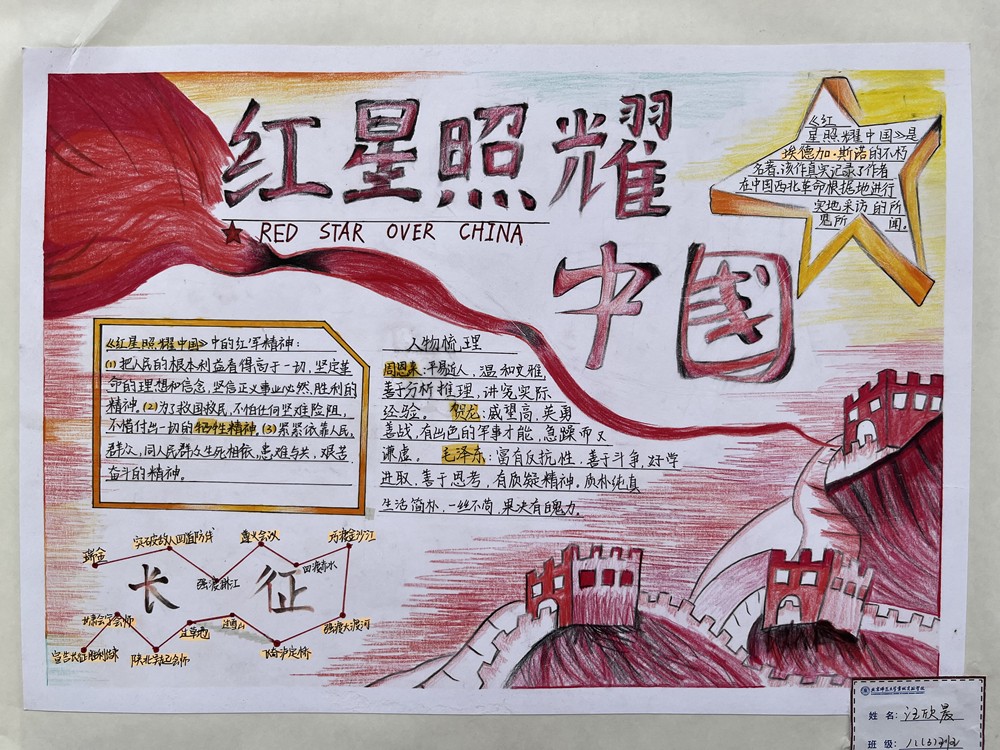 红星照耀
中国
RED STAR OVER CHINA
《红
星照耀中国》是
埃德加·斯诺的不朽
名著,该作真实记录了作者
在中国西北革命根据地进行
实地采访的所
见所闻。
《红星照耀中国》中的红军精神:
(1)把人民的根本利益看得高于一切,坚定革
命的理想和信念,坚信正义事业必然胜利的
精神。(2)为了救国救民,不怕任何艰难险阻,
不惜付出一切的牺牲精神。(3)紧紧依靠人民,
群众,同人民群众生死相依,患难与共,艰苦
奋斗的精神。
人物梳理
周恩来:平易近人,温和文雅
善于分析推理,讲究实际
经验。贺龙:威望高,英勇
善战,有出色的军事才能,急躁而又
谦虚。毛泽东:富有反抗性,善于斗争,好学
进取,善于思考,有质疑精神。质朴纯真
生活简朴,一丝不苟,果决有魄力。
长征
瑞金
突破敌人四道防线
强渡湘江
遵义会议
四渡赤水
巧渡金沙江
强渡大渡河
飞夺泸定桥
过雪山
过草地
陕北吴起会师
甘肃会宁会师
宣告长征胜利结束
姓名:汪欣晨
班级: